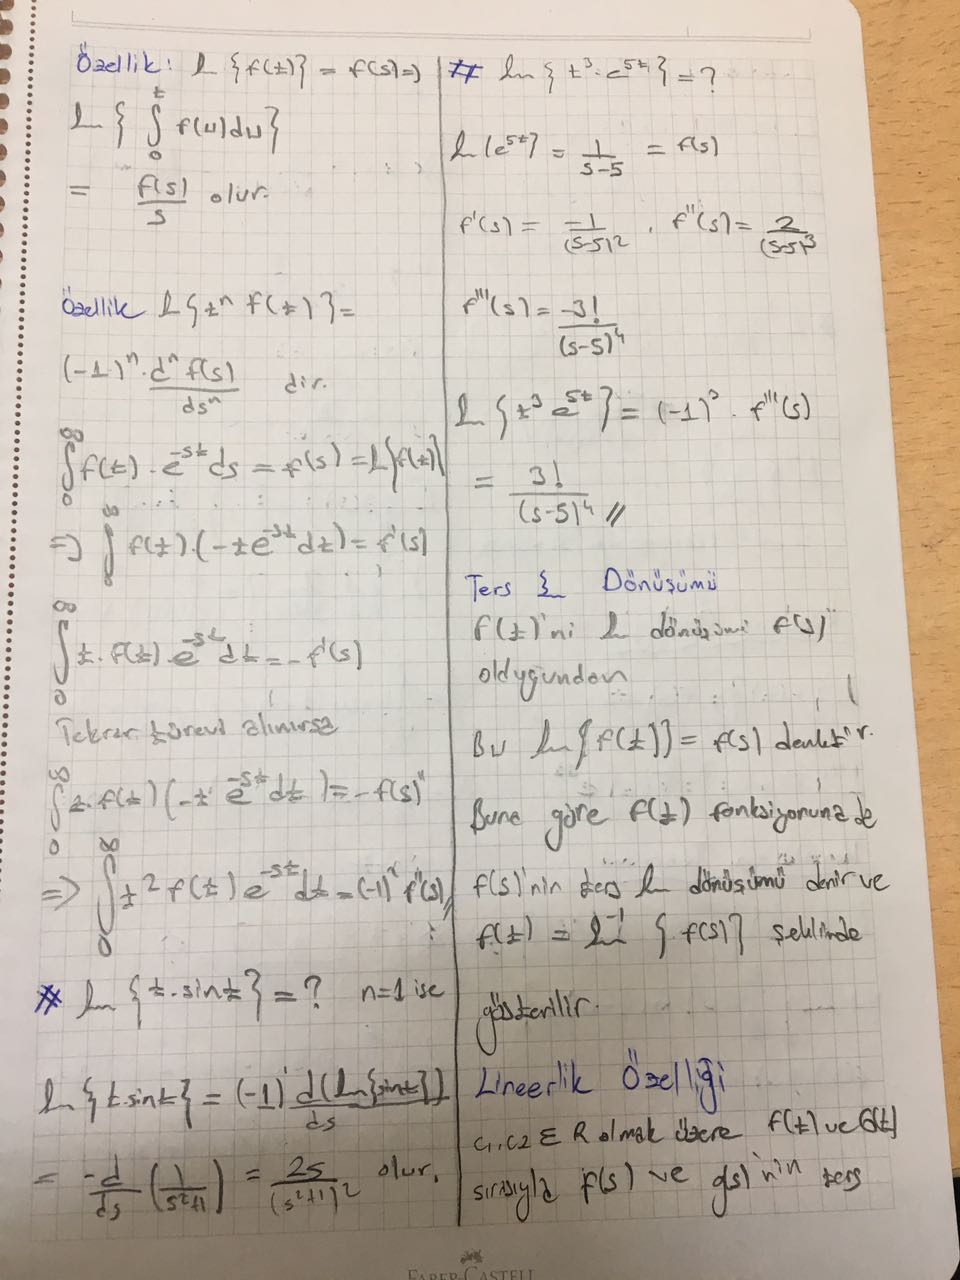 Özellik: L {f(t)} = f(s) =>
L { ∫₀ᵗ f(u) du}
= f(s)/s olur.
Özellik L{tⁿ f(t)} =
(-1)ⁿ · dⁿ f(s)/dsⁿ dir.
∫₀^∞ f(t) · e^(-st) ds = f(s) = L{f(t)}
=> ∫₀^∞ f(t) · (-t e^(-st) dt) = f'(s)
∫₀^∞ t · f(t) · e^(-st) dt = - f'(s)
Tekrar türevi alınırsa
∫₀^∞ t · f(t) (-t e^(-st) dt) = - f(s)''
=> ∫₀^∞ t² f(t) e^(-st) dt = (-1)² f''(s) //
# L {t · sint} = ? n=1 ise
L {t sint} = (-1)¹ d(L{sint})/ds
= -d/ds (1/(s²+1)) = 2s/(s²+1)² olur.
# L { t³ · e^(5t) } = ?
L {e^(5t)} = 1/(s-5) = f(s)
f'(s) = -1/(s-5)² , f''(s) = 2/(s-5)³
f'''(s) = -3!/(s-5)⁴
L { t³ e^(5t) } = (-1)³ · f'''(s)
= 3!/(s-5)⁴ //
Ters L Dönüşümü
f(t)'ni L dönüşümü f(s)
olduğundan
Bu L{f(t)} = f(s) denktir.
Buna göre f(t) fonksiyonuna de
f(s)'nin ters L dönüşümü denir ve
f(t) = L⁻¹ {f(s)} şeklinde
gösterilir.
Lineerlik Özelliği
c₁, c2 ∈ R olmak üzere f(t) ve G(t)
sırasıyla f(s) ve g(s)'nin ters
FABER-CASTELL